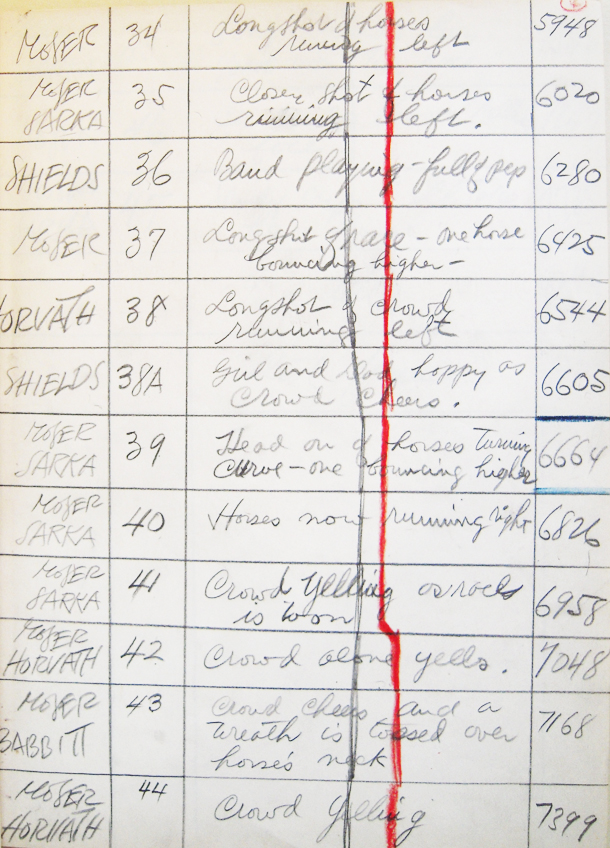 MOSER 34 Longshot of horses 5948
running left
MOSER 35 Closer shot of horses 6020
SARKA running left.
SHIELDS 36 Band playing - full of pep 6280
MOSER 37 Longshot of race - one horse 6425
bouncing higher -
HORVATH 38 Longshot of crowd 6544
running left
SHIELDS 38A Girl and happy as 6605
crowd cheers.
MOSER 39 Head on of horses turning 6664
SARKA curve - one bouncing higher
MOSER 40 Horses now running right 6826
SARKA
MOSER 41 Crowd yelling as race 6958
SARKA is won
MOSER 42 Crowd alone yells. 7048
HORVATH
MOSER 43 Crowd cheers and a 7168
BABBITT wreath is tossed over
horse's neck
MOSER 44 Crowd yelling 7399
HORVATH